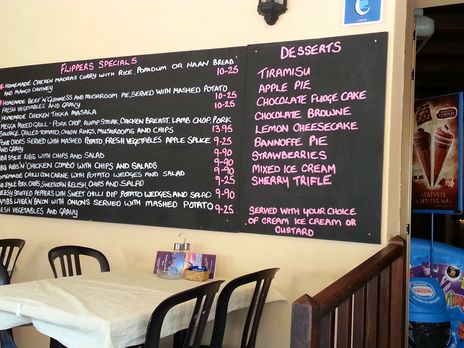 FLIPPERS SPECIALS
HOMEMADE CHICKEN MADRAS CURRY WITH RICE, POPADUM OR NAAN BREAD
AND MANGO CHUTNEY 10-25
HOMEMADE BEEF 'N' GUINNESS AND MUSHROOM PIE, SERVED WITH MASHED POTATO
FRESH VEGETABLES AND GRAVY 10-25
HOMEMADE CHICKEN TIKKA MASALA 10-25
MEGGA MIXED GRILL - PORK CHOP, RUMP STEAK, CHICKEN BREAST, LAMB CHOP, PORK
SAUSAGE, GRILLED TOMATO, ONION RINGS, MUSHROOMS AND CHIPS 13.95
PORK CHOPS SERVED WITH MASHED POTATO, FRESH VEGETABLES APPLE SAUCE
AND GRAVY 9-25
BBQ STYLE RIBS WITH CHIPS AND SALAD 9-90
BBQ RIBS 'N' CHICKEN COMBO WITH CHIPS AND SALADS 9-90
HOMEMADE CHILLI CON CARNE WITH POTATO WEDGES AND SALAD 9-90
STYLE PORK CHOPS, SWEETCORN RELISH, CHIPS AND SALAD 9-25
STUFFED PEPPERS WITH SWEET CHILLI DIP, POTATO WEDGES AND SALAD 9-90
LAMBS LIVER 'N' BACON WITH ONIONS SERVED WITH MASHED POTATO
FRESH VEGETABLES AND GRAVY 9-25
DESSERTS
TIRAMISU
APPLE PIE
CHOCOLATE FUDGE CAKE
CHOCOLATE BROWNE
LEMON CHEESECAKE
BANNOFFE PIE
STRAWBERRIES
MIXED ICE CREAM
SHERRY TRIFLE
SERVED WITH YOUR CHOICE
OF CREAM ICE CREAM OR
CUSTARD